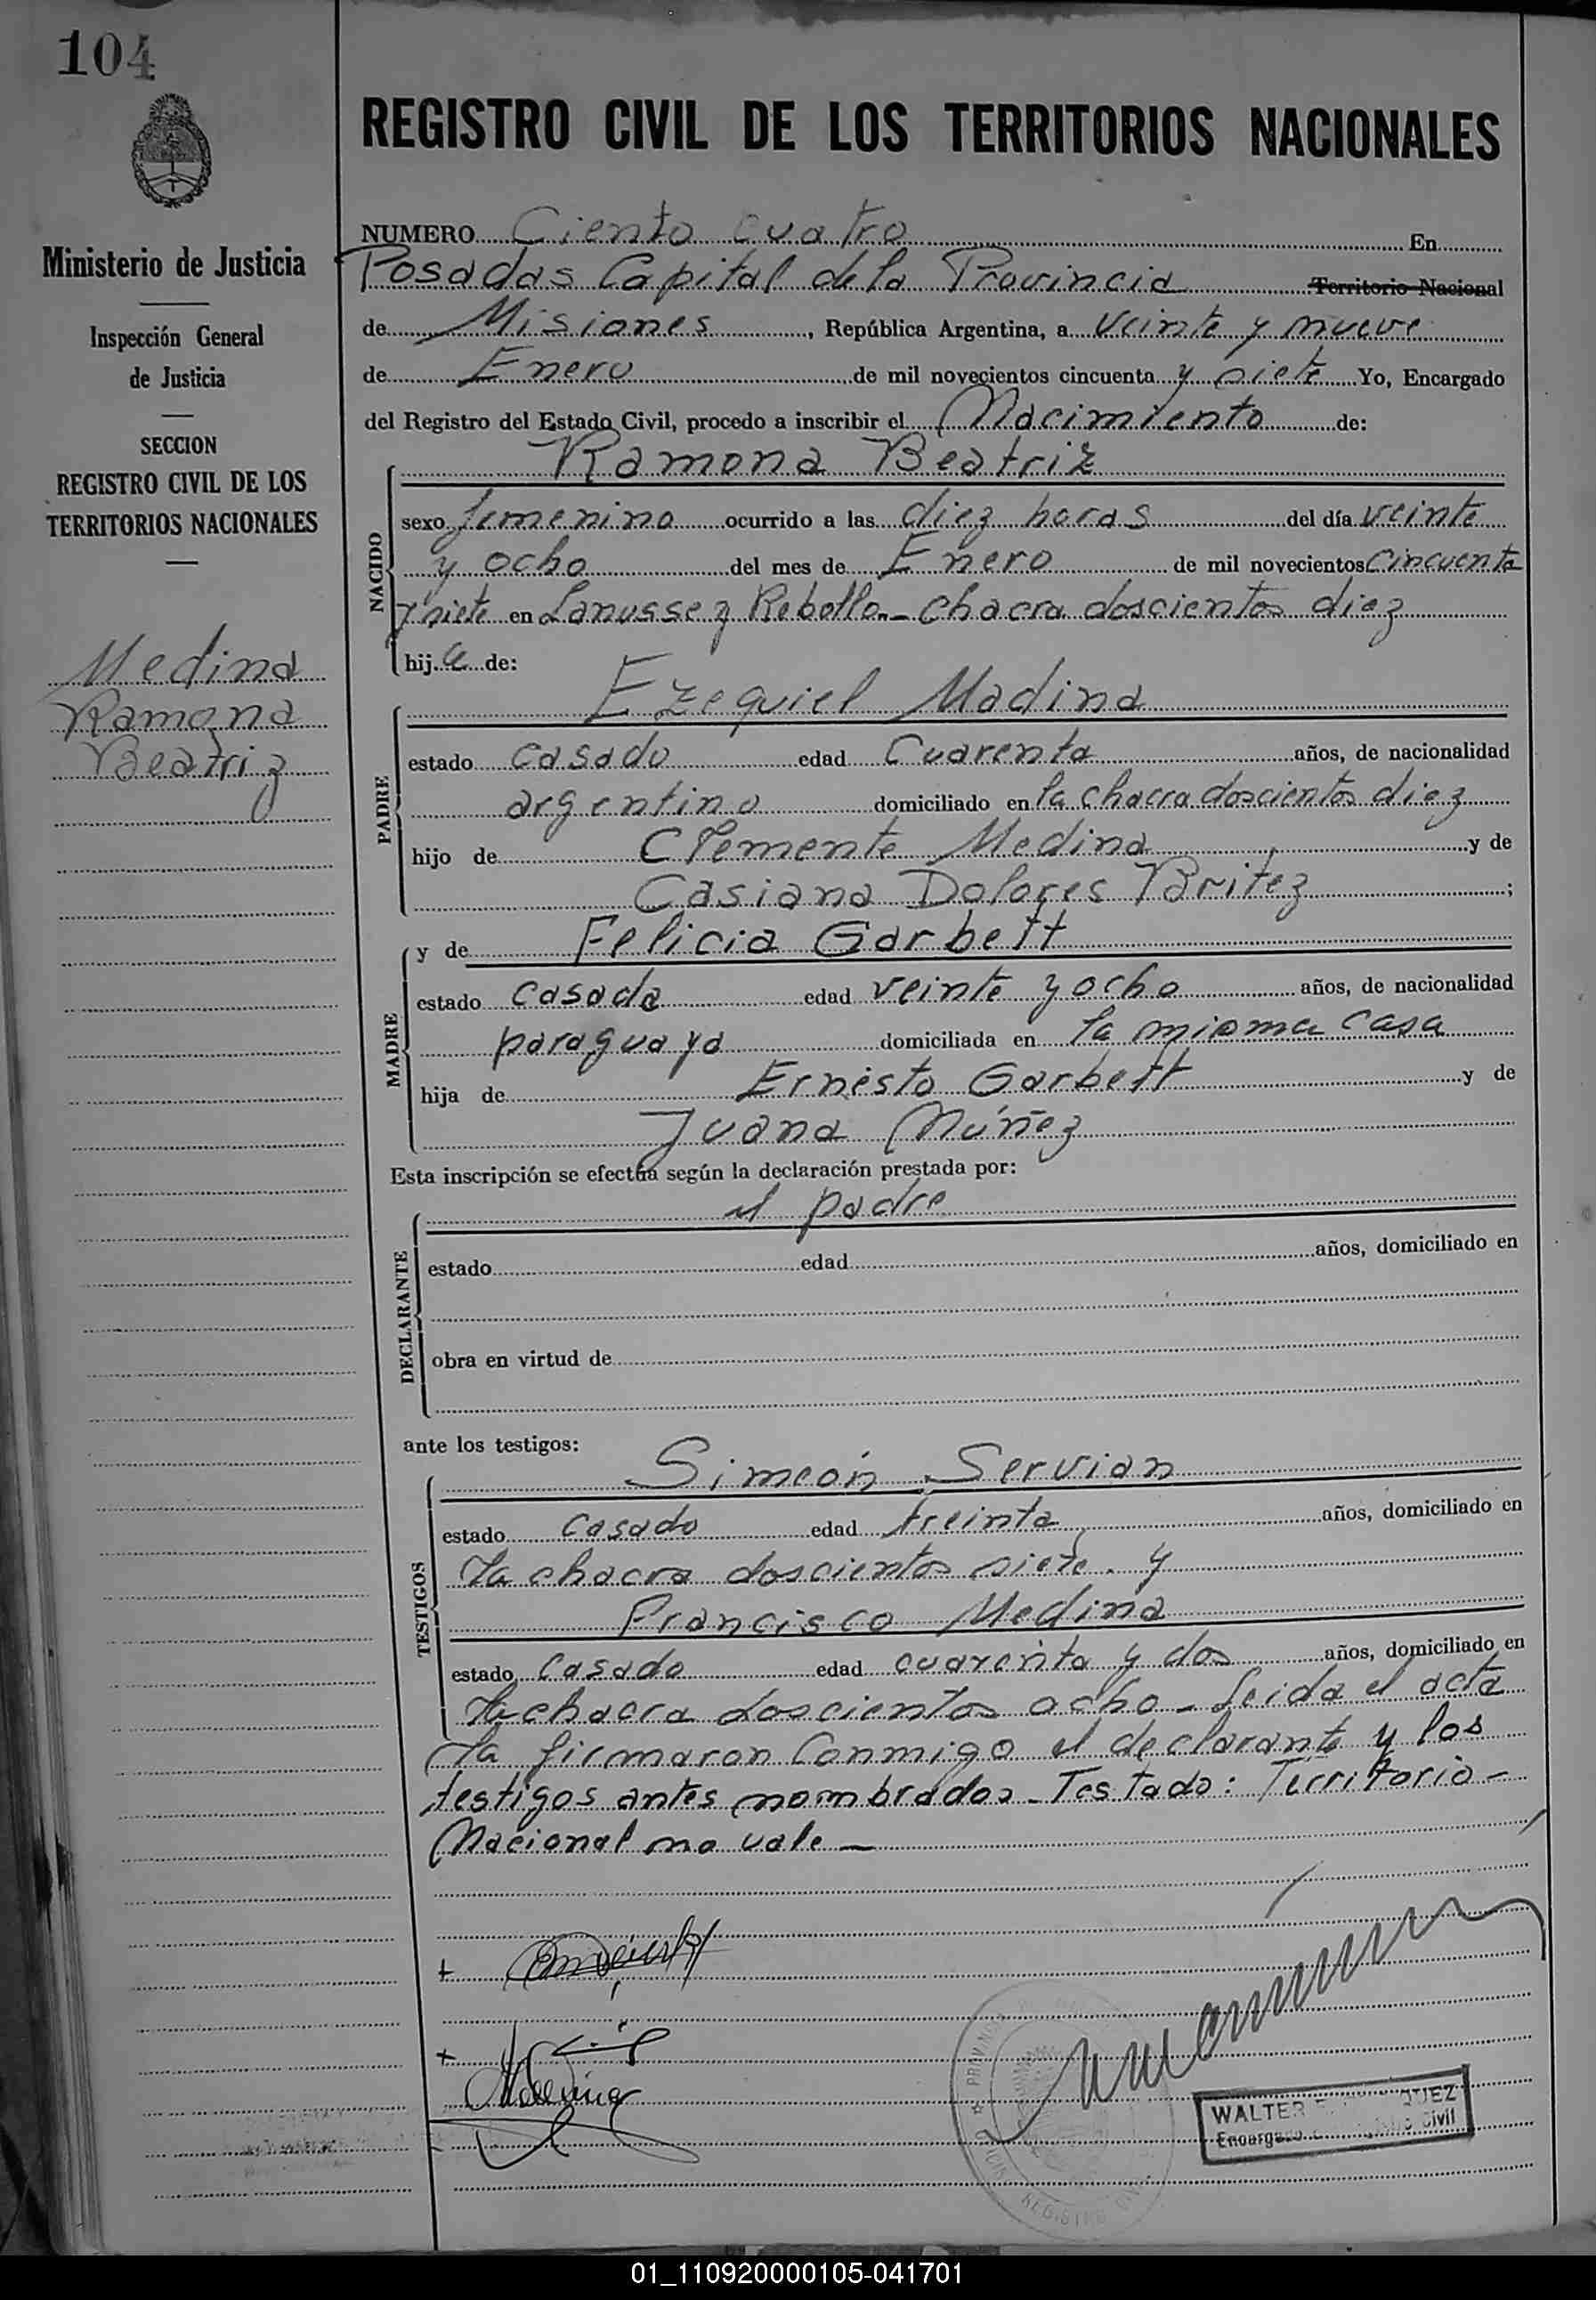 104
REGISTRO CIVIL DE LOS TERRITORIOS NACIONALES
Ministerio de Justicia
Inspección General
de Justicia
SECCION
REGISTRO CIVIL DE LOS
TERRITORIOS NACIONALES
Medina
Ramona
Beatriz
NUMERO Ciento cuatro En
Posadas Capital de la Provincia Territorio Nacional
de Misiones, República Argentina, a veinte y nueve
de Enero de mil novecientos cincuenta y siete Yo, Encargado
del Registro del Estado Civil, procedo a inscribir el Nacimiento de:
NACIDO
Ramona Beatriz
sexo femenino ocurrido a las diez horas del día veinte
y ocho del mes de Enero de mil novecientos cincuenta
y siete en Lanusse y Rebollo.- chacra doscientos diez
hija de:
PADRE
Ezequiel Madina
estado casado edad Cuarenta años, de nacionalidad
argentino domiciliado en la chacra doscientos diez
hijo de Clemente Medina y de
Casiana Dolores Britez ;
MADRE
y de Felicia Garbett
estado casada edad veinte y ocho años, de nacionalidad
paraguaya domiciliada en la misma casa
hija de Ernesto Garbett y de
Juana Núñez
Esta inscripción se efectúa según la declaración prestada por:
DECLARANTE
el padre
estado edad años, domiciliado en
obra en virtud de
ante los testigos:
TESTIGOS
Simeón Servian
estado casado edad treinta años, domiciliado en
la chacra doscientos siete. y
Francisco Medina
estado casado edad cuarenta y dos años, domiciliado en
la chacra doscientos ocho - Leida el acta
la firmaron conmigo el declarante y los
testigos antes nombrados - Testado: Territorio -
Nacional no vale -
Medina
WALTER QUEZ
Encarg Civil
PROVINCIA
REGISTRO
01_110920000105-041701